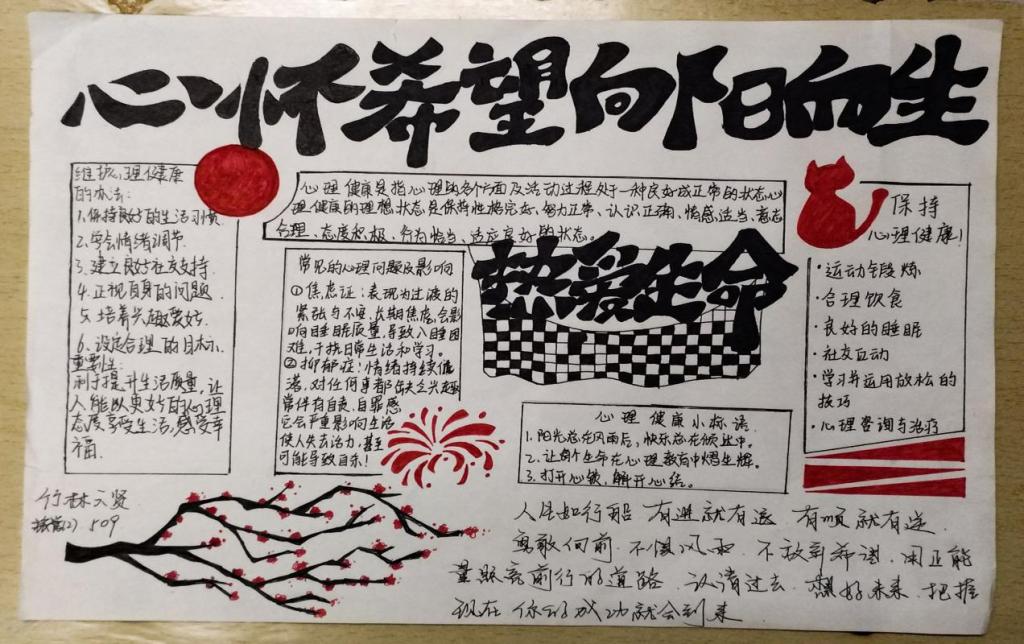 心怀希望向阳向生
维护心理健康
的办法:
1.保持良好的生活习惯
2.学会情绪调节.
3.建立良好社交支持.
4.正视自身的问题.
5.培养兴趣爱好.
6.设定合理的目标.
重要性:
利于提升生活质量,让
人能以更好的心理
态度享受生活,感受幸
福.
心理健康是指心理的各个方面及活动过程处于一种良好或正常的状态,心
理健康的理想状态是保持性格完好、智力正常、认识正确、情感适当、意志
合理、态度积极、行为恰当、适应良好的状态。
常见的心理问题及影响
①焦虑症:表现为过度的
紧张与不安.长期焦虑,会影
响睡眠质量,导致入睡困
难,干扰日常生活和学习。
②抑郁症!情绪持续低
落,对任何事都缺乏兴趣
常伴有自责,自罪感
它会严重影响生活
使人失去活力,甚至
可能导致自杀!
热爱生命
保持
心理健康!
·运动锻炼
·合理饮食
·良好的睡眠
·社交互动
·学习并运用放松的
技巧
·心理咨询与治疗
心理健康小标语
1.阳光总在风雨后,快乐总在倾吐中。
2.让每个生命在心理教育中熠生辉。
3.打开心锁,解开心结。
509
人生如行船 有进就有退 有顺就有逆
勇敢向前 不惧风雨 不放弃希望 用正能
量照亮前行的道路 认清过去 想好未来 把握
现在 你的成功就会到来